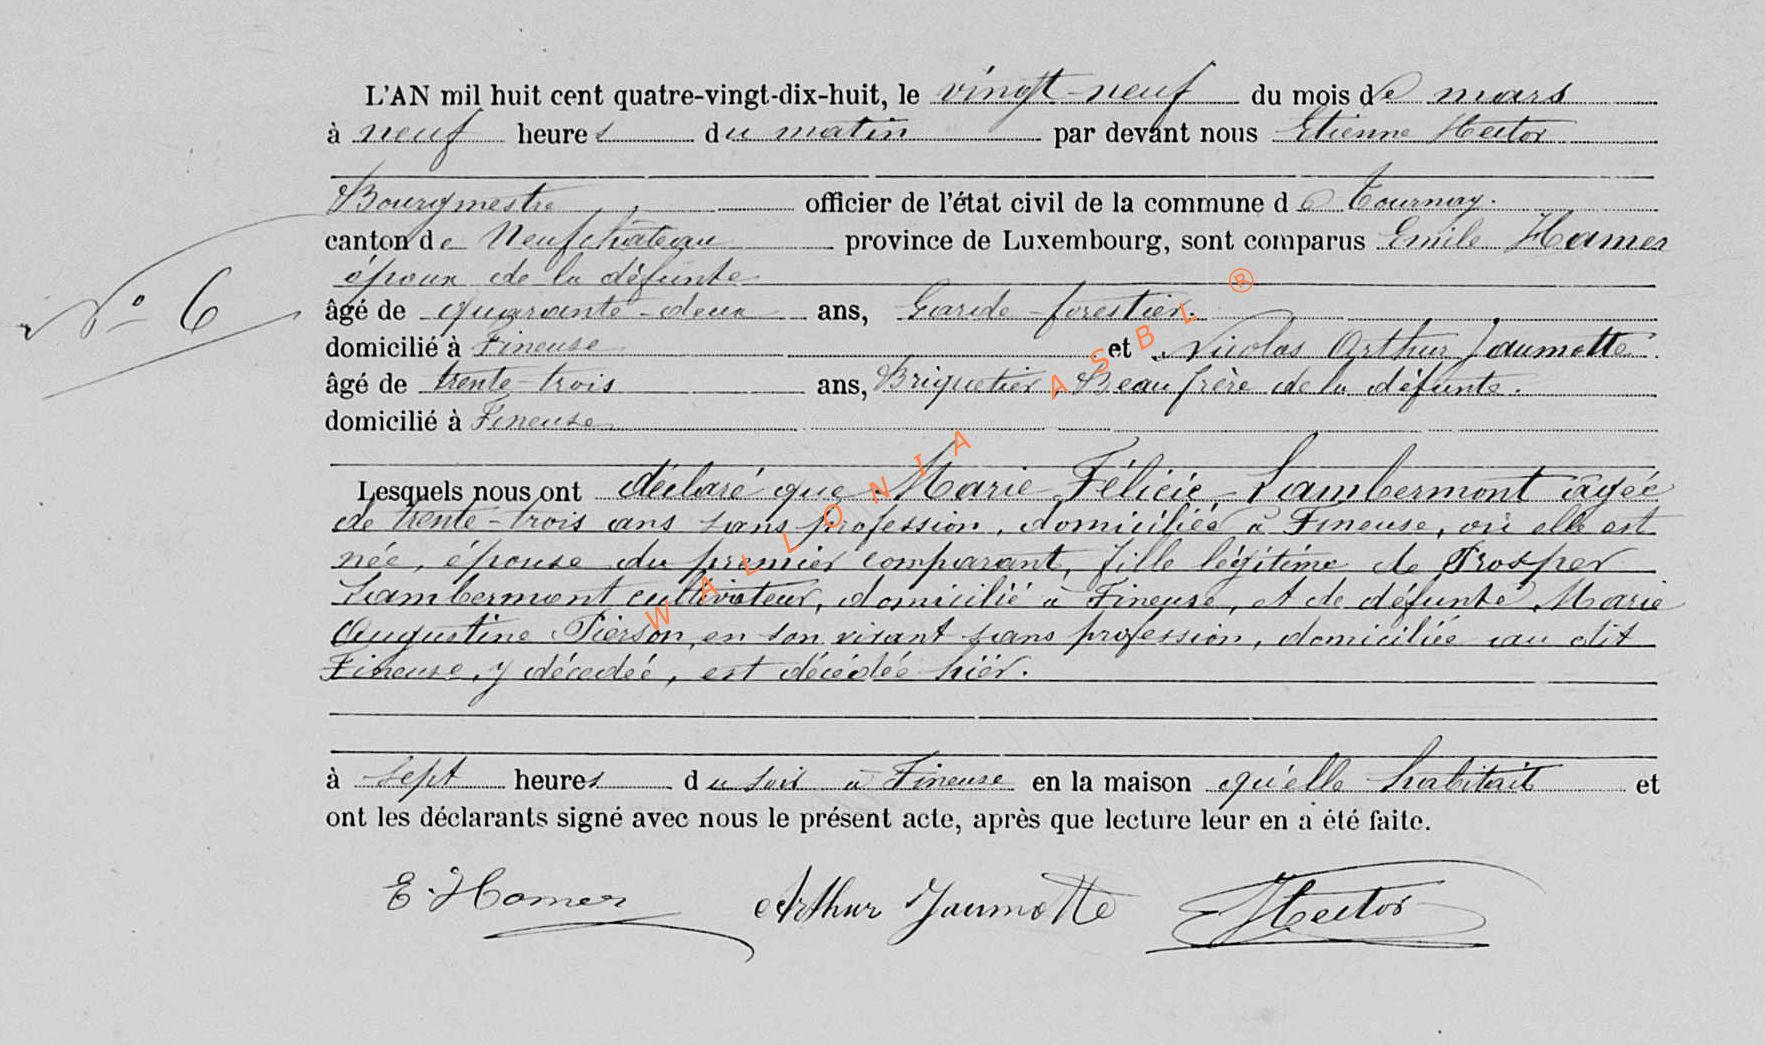 L'AN mil huit cent quatre-vingt-dix-huit, le vingt-neuf du mois de mars
à neuf heures du matin par devant nous Etienne Hector
Bourgmestre officier de l'état civil de la commune de Tournay.
canton de Neufchâteau province de Luxembourg, sont comparus Emile Hamer
époux de la défunte
N° 6
âgé de quarante-deux ans, Garde-forestier.
domicilié à Fineuse et Nicolas Arthur Jaumotte
âgé de trente-trois ans, Briquetier, Beau frère de la défunte.
domicilié à Fineuse
Lesquels nous ont déclaré que Marie Félicie Lambermont agée
de trente-trois ans sans profession, domiciliée à Fineuse, où elle est
née, épouse du premier comparant, fille légitime de Prosper
Lambermont cultivateur, domicilié à Fineuse, et de défunte Marie
Augustine Pierson, en son vivant sans profession, domiciliée au dit
Fineuse, y décedée, est décédée hier.
à sept heures du soir à Fineuse en la maison qu'elle habitait et
ont les déclarants signé avec nous le présent acte, après que lecture leur en a été faite.
E. Hamer Arthur Jaumotte E Hector
WALLONIA ASBL ®